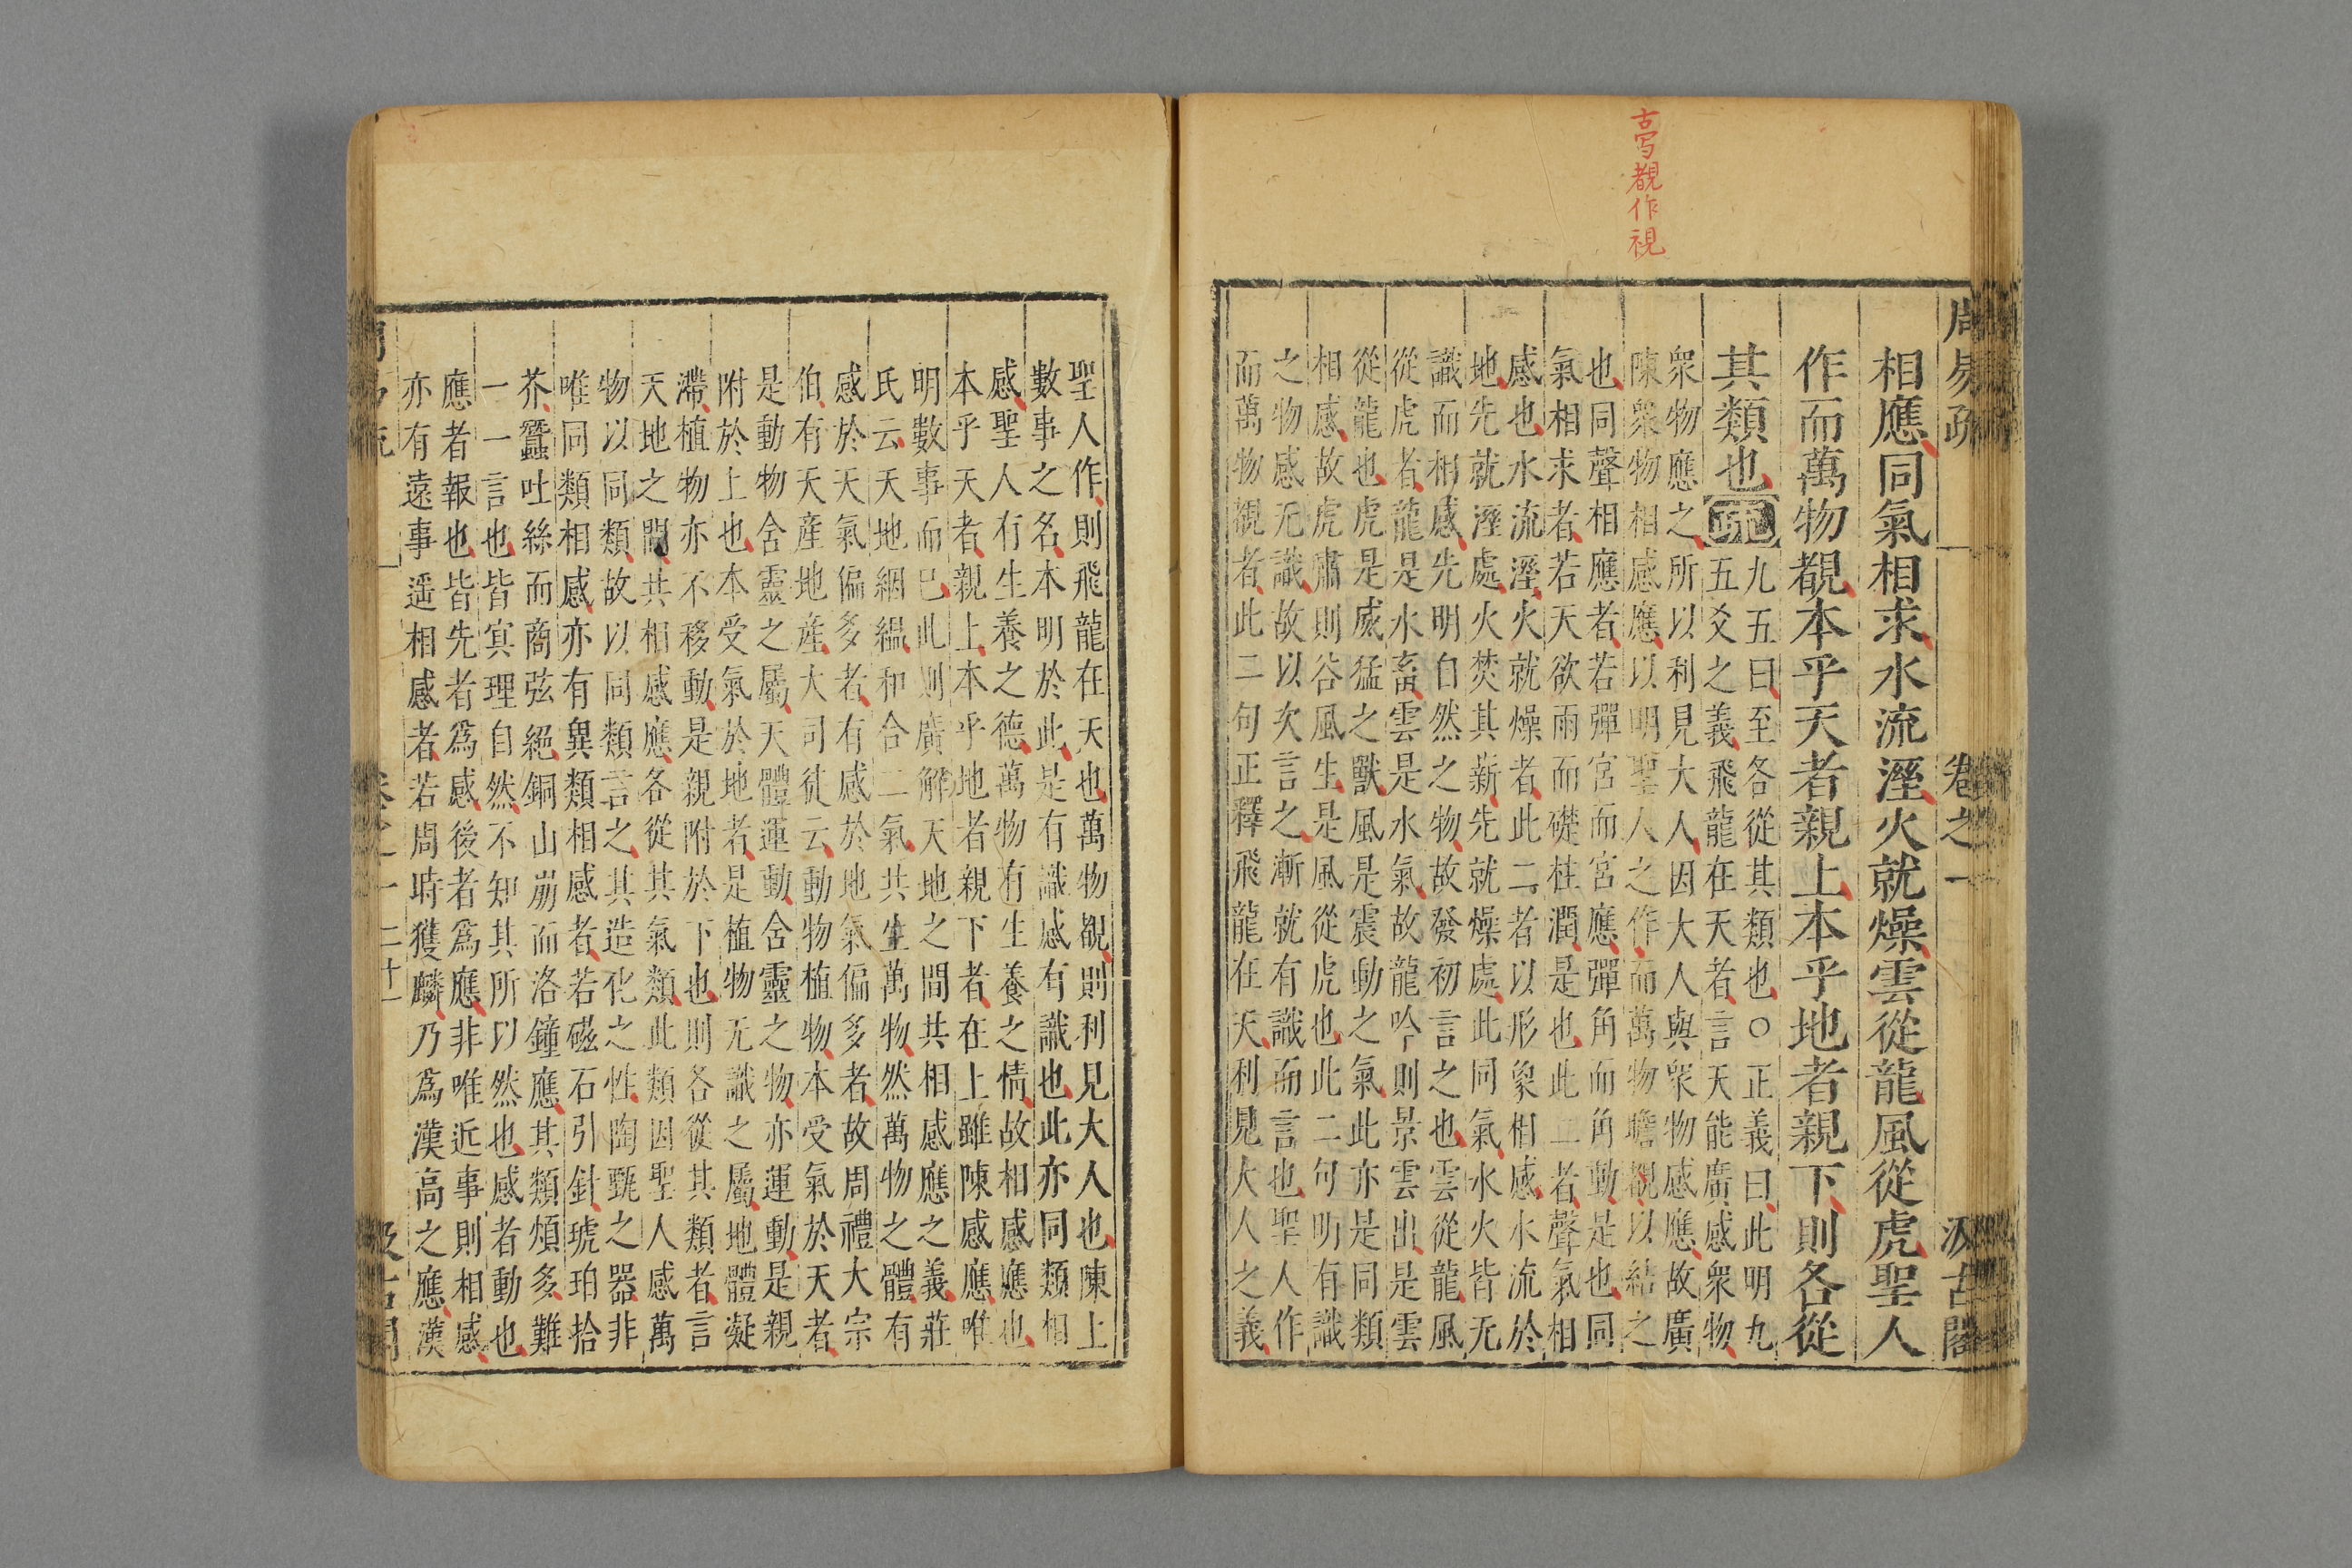 古写覩作視
周易疏 卷之一 汲古閣
相應同氣相求水流溼火就燥雲從龍風從虎聖人
作而萬物覩本乎天者親上本乎地者親下則各從
其類也疏
九五曰至各從其類也○正義曰此明九
五爻之義飛龍在天者言天能廣感衆物
衆物應之所以利見大人因大人與衆物感應故廣
陳衆物相感應以明聖人之作而萬物瞻覩以結之
也同聲相應者若彈宮而宮應彈角而角動是也同
氣相求者若天欲雨而礎柱潤是也此二者聲氣相
感也水流溼火就燥者此二者以形象相感水流於
地先就溼處火焚其薪先就燥處此同氣水火皆无
識而相感先明自然之物故發初言之也雲從龍風
從虎者龍是水畜雲是水氣故龍吟則景雲出是雲
從龍也虎是威猛之獸風是震動之氣此亦是同類
相感故虎嘯則谷風生是風從虎也此二句明有識
之物感无識故以次言之漸就有識而言也聖人作
而萬物覩者此二句正釋飛龍在天利見大人之義
聖人作則飛龍在天也萬物覩則利見大人也陳上
數事之名本明於此是有識感有識也此亦同類相
感聖人有生養之德萬物有生養之情故相感應也
本乎天者親上本乎地者親下者在上雖陳感應唯
明數事而已此則廣解天地之間共相感應之義莊
氏云天地絪縕和合二氣共生萬物然萬物之體有
感於天氣偏多者有感於地氣偏多者故周禮大宗
伯有天產地產大司徒云動物植物本受氣於天者
是動物含靈之屬天體運動含靈之物亦運動是親
附於上也本受氣於地者是植物无識之屬地體凝
滯植物亦不移動是親附於下也則各從其類者言
天地之間共相感應各從其氣類此類因聖人感萬
物以同類故以同類言之其造化之性陶甄之器非
唯同類相感亦有異類相感者若磁石引針琥珀拾
芥蠶吐絲而商弦絕銅山崩而洛鐘應其類煩多難
一一言也皆冥理自然不知其所以然也感者動也
應者報也皆先者爲感後者爲應非唯近事則相感
亦有遠事遥相感者若周時獲麟乃爲漢高之應漢
卷之一 二十一